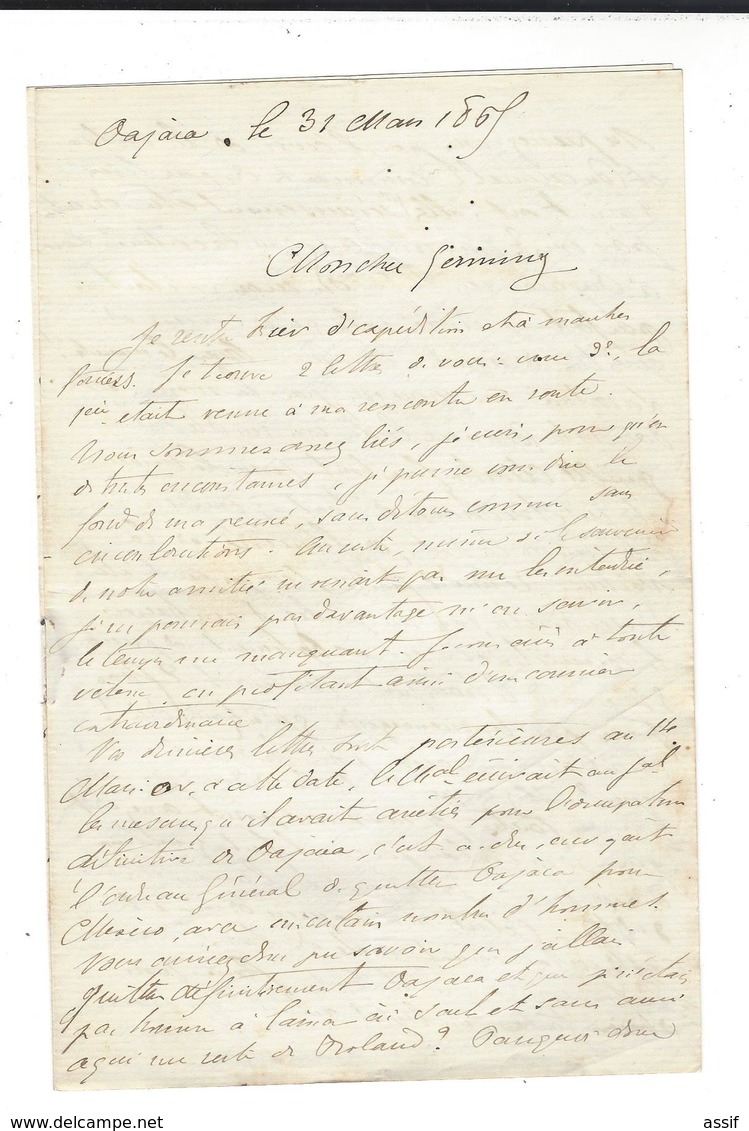 Oajaca. le 31 Mars 1865
Mon cher Germiny
Je rentre hier d'expédition et à marches
forcées. Je trouve 2 lettres de vous une Dre, la
1ère était venue à ma rencontre en route.
Nous sommes assez liés, je crois, pour qu'en
de telles circonstances, je puisse vous dire le
fond de ma pensée, sans détours comme sans
circonlocutions. Au reste, même si le souvenir
de notre amitié ne venait pas me les interdire,
je ne pourrais pas davantage m'en servir,
le temps me manquant. Je vous écris à toute
vitesse, en profitant ainsi d'un courrier
extraordinaire
Vos dernières lettres sont postérieures au 14
Mars or, à cette date, le Mal écrivait au gal
les mesures qu'il avait arrêtées pour l'occupation
définitive de Oajaca, c'est à dire, envoyait
l'ordre au Général de quitter Oajaca pour
Mexico, avec un certain nombre d'hommes.
Vous auriez donc pu savoir que j'allais
quitter définitivement Oajaca et que je n'étais
pas homme à laisser ici seul et sans ami
a qui me reste de Roland? Pourquoi donc
assif